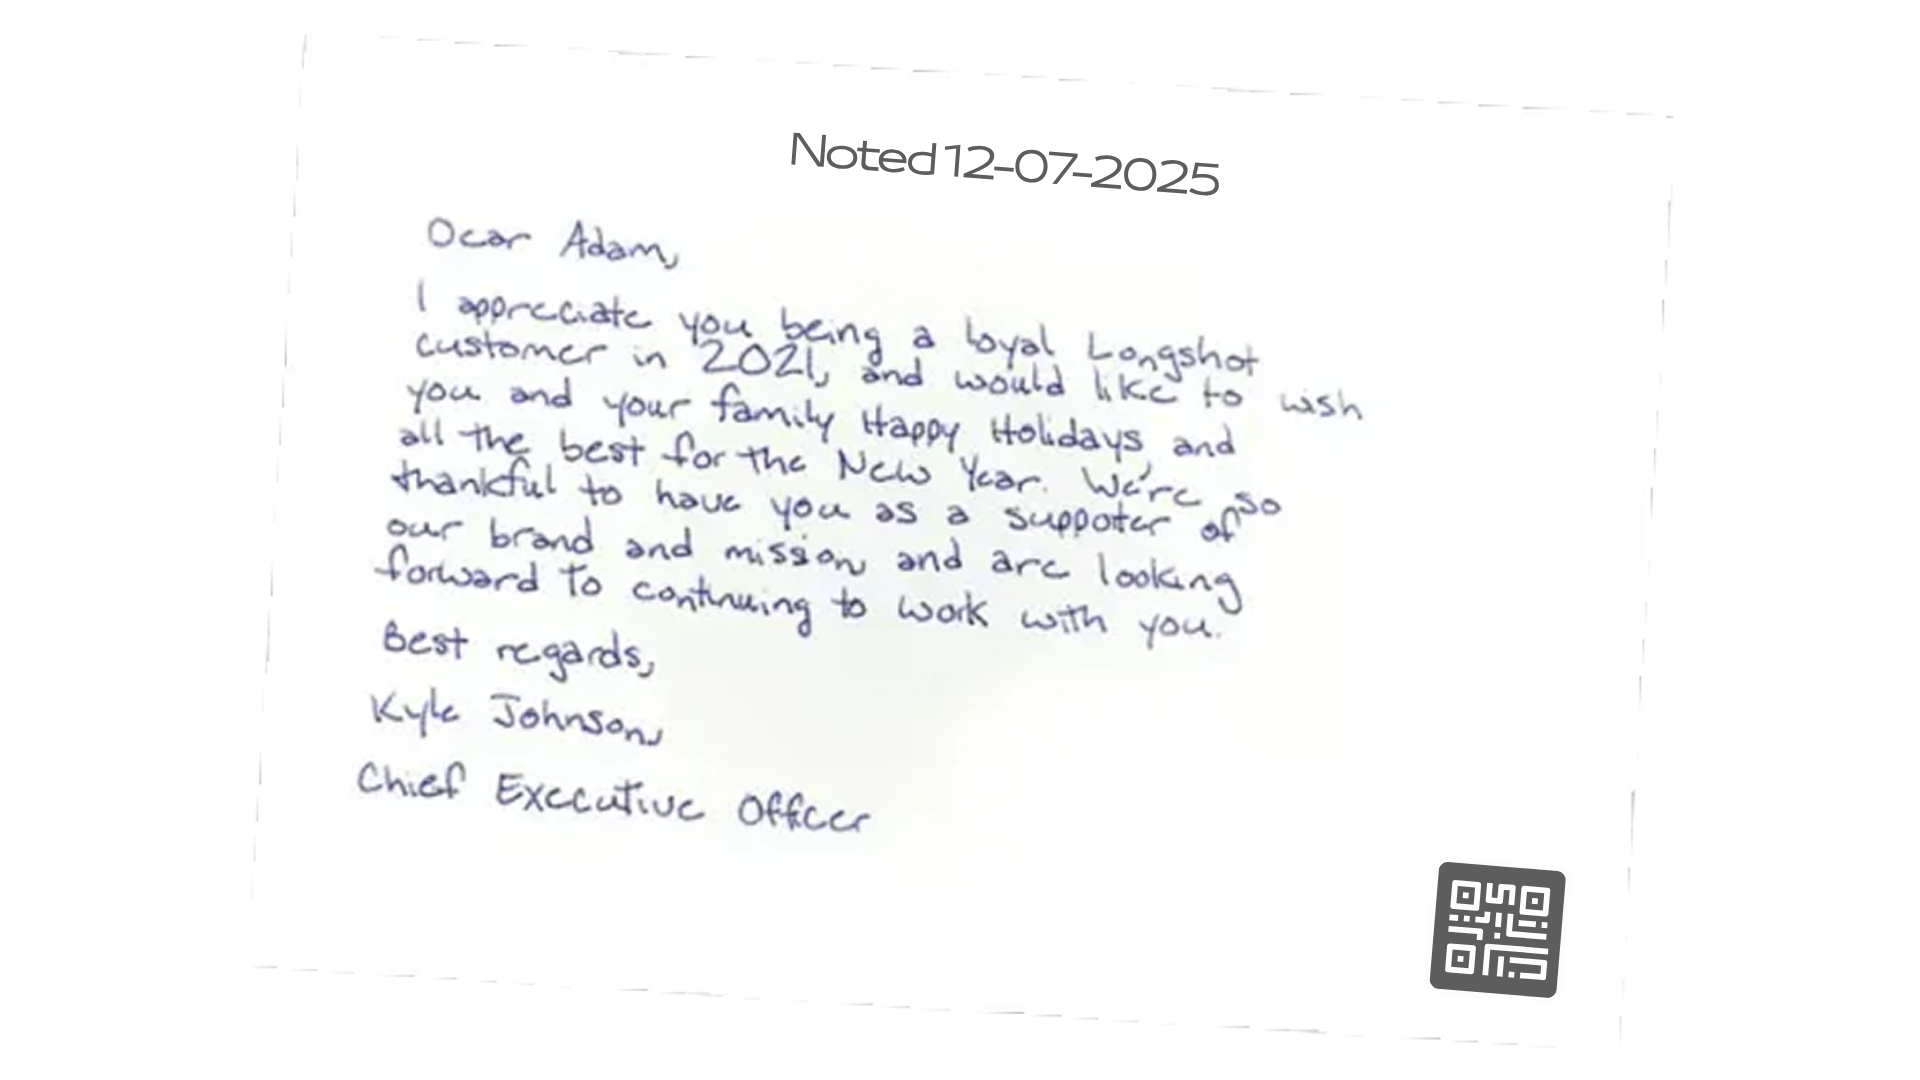 Noted 12-07-2025
Dear Adam,
I appreciate you being a loyal Longshot
customer in 2021, and would like to wish
you and your family Happy Holidays, and
all the best for the New Year. We're so
thankful to have you as a suppoter of
our brand and mission and are looking
forward to continuing to work with you.
Best regards,
Kyle Johnson,
Chief Executive Officer